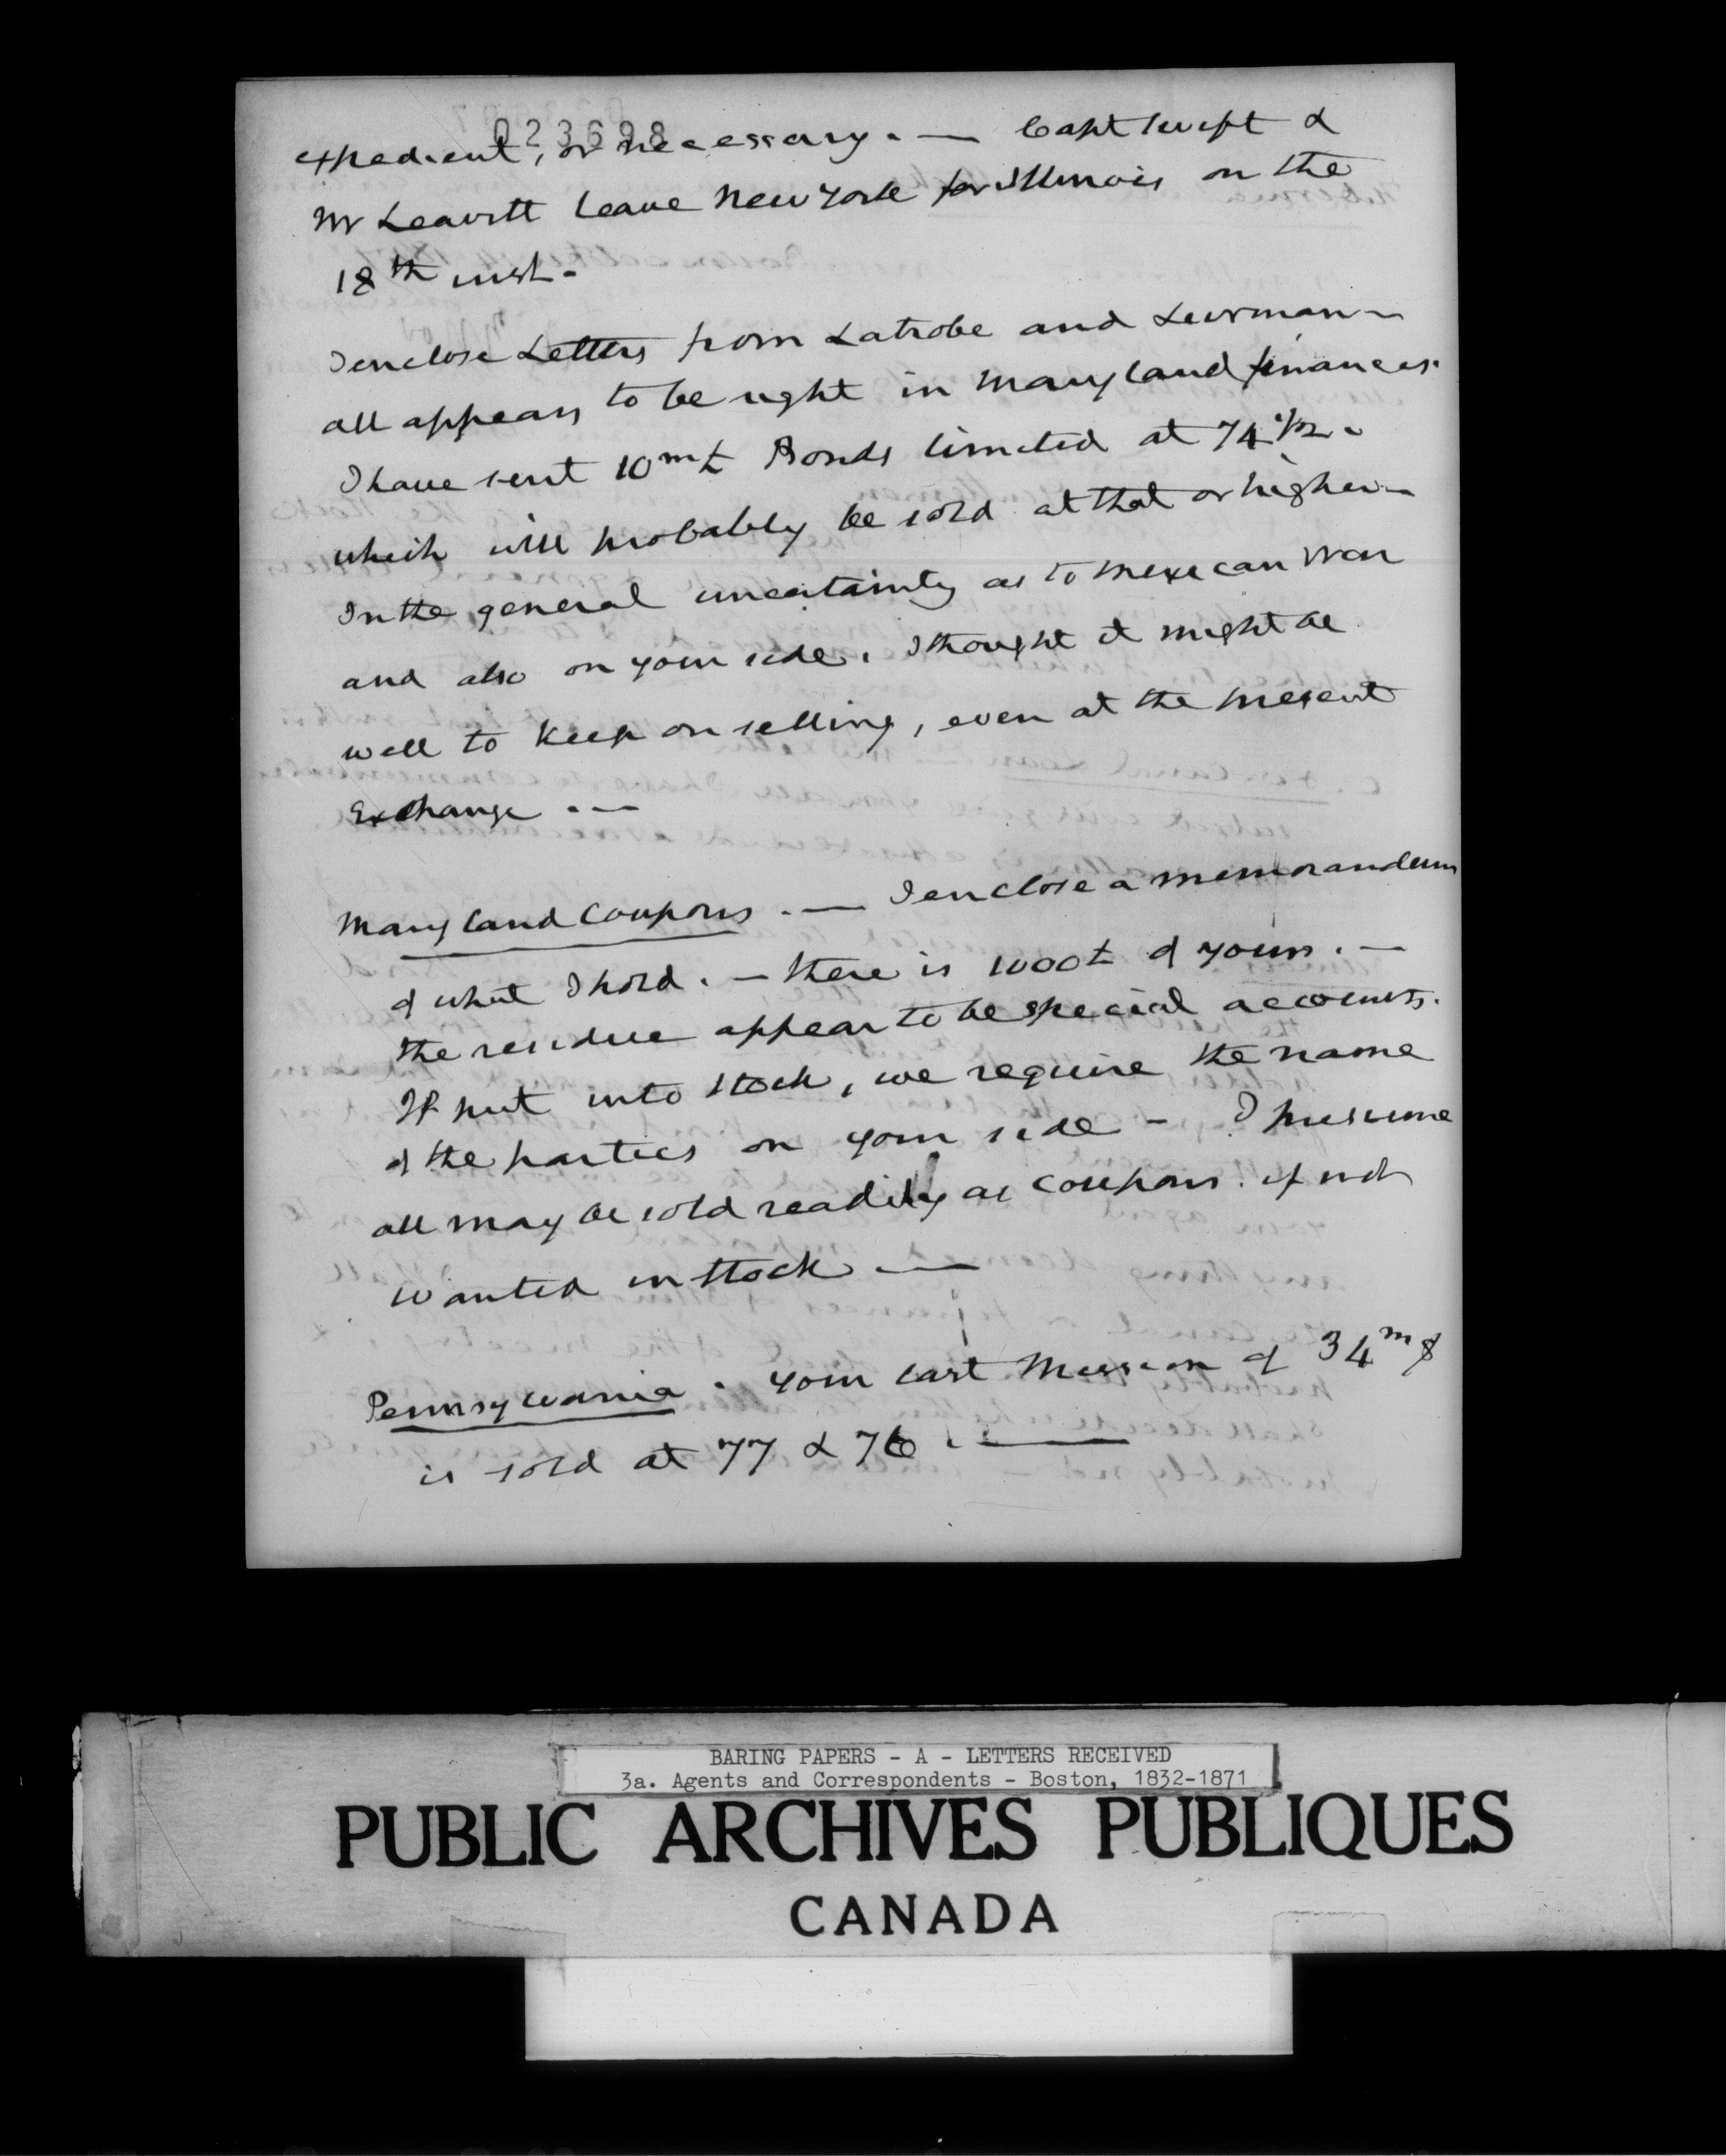 023698
expedient, or necessary. — Capt Swift &
Mr Leavitt leave New York for Illinois on the
18th inst -
I enclose Letters from Latrobe and Luvrman -
all appears to be right in Maryland finances.
I have sent 10m £ Bonds limited at 74 1/2 -
which will probably be sold at that or higher -
In the general uncertainty as to Mexican War
and also on your side, I thought it might be
well to keep on selling, even at the present
Exchange . —
Maryland Coupons . — I enclose a memorandum
of what I hold . — there is 1000£ of yours . —
the residue appear to be special accounts.
If put into Stock, we require the name
of the parties on your side - I presume
all may be sold readily as coupons . if not
wanted in Stock —
Pennsylvania . your last Mission of 34m $
is sold at 77 & 76 . —
BARING PAPERS - A - LETTERS RECEIVED
3a. Agents and Correspondents - Boston, 1832-1871
PUBLIC ARCHIVES PUBLIQUES
CANADA